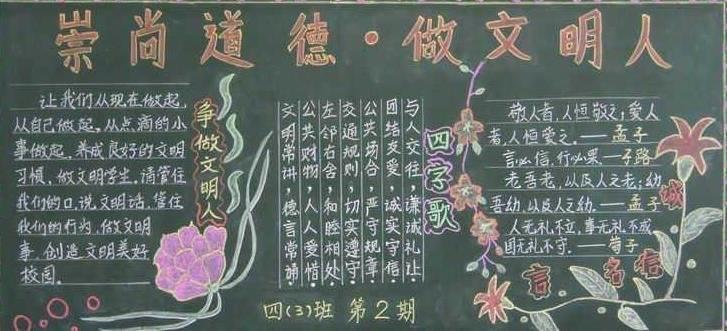 崇尚道德·做文明人
让我们从现在做起，
从自己做起，从点滴的小
事做起，养成良好的文明
习惯，做文明学生。请管住
我们的口，说文明话，管住
我们的行为，做文明
事，创造文明美好
校园。
争做文明人
四字歌
与人交往，谦诚礼让。
团结友爱，诚实守信。
公共场合，严守规章。
交通规则，切实遵守。
左邻右舍，和睦相处。
公共财物，人人爱惜。
文明常讲，德言常诵。
敬人者，人恒敬之；爱人
者，人恒爱之。——孟子
言必信，行必果。——子路
老吾老，以及人之老；幼
吾幼，以及人之幼。——孟子
人无礼不立，事无礼不成，
国无礼不守。——荀子
诚信名言
四(3)班 第2期